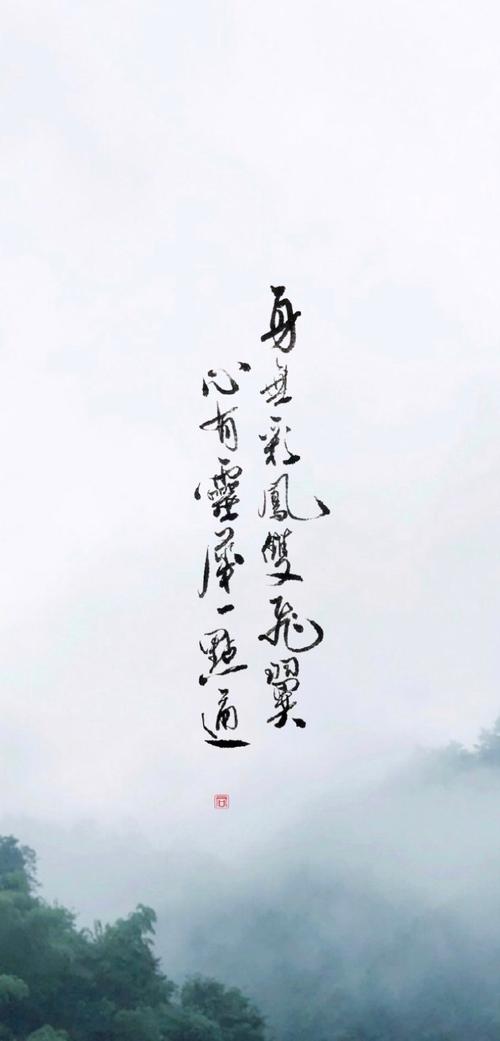 身無彩鳳雙飛翼
心有靈犀一點通